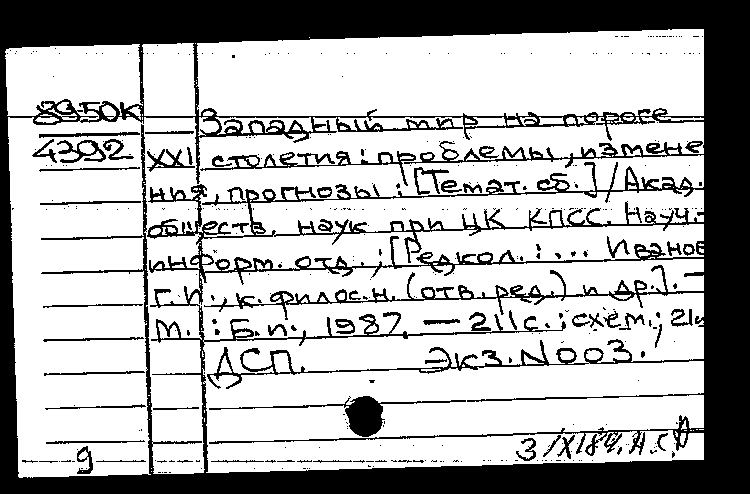 8950К
4392
Западный мир на пороге
XXI столетия: проблемы, измене
ния, прогнозы: [Темат. сб.] / Акад.
обществ. наук при ЦК КПСС. Науч.-
информ. отд.; [Редкол.: ... Иванов
Г.И., к. филос. н. (отв. ред.) и др.]. –
М.: Б.и., 1987. — 211 с.: схем.; 21
ДСП. Экз. N 003.
9